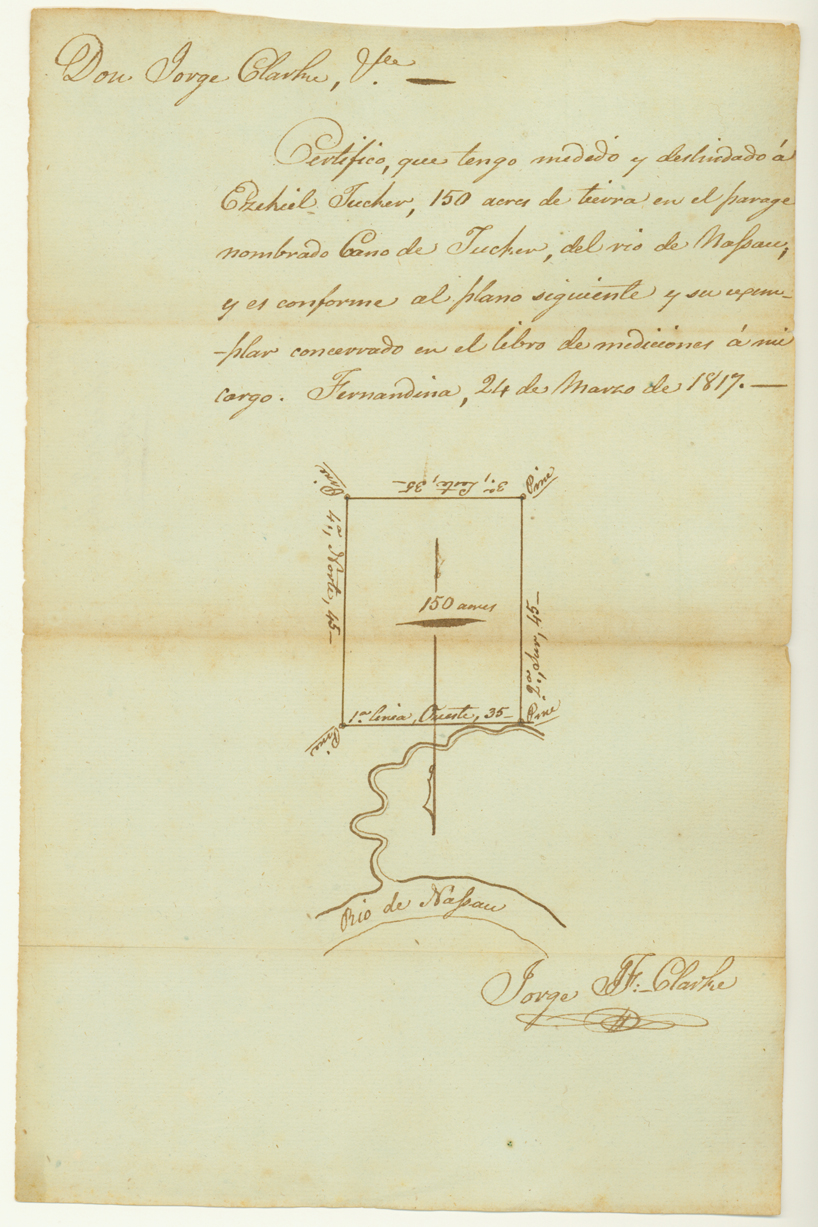 Don Jorge Clarke, &ce
Certifico, que tengo medido y deslindado á
Ezekiel Tucker, 150 acres de tierra en el parage
nombrado Cano de Tucker, del rio de Nassau,
y es conforme al plano siguiente y su exem-
-plar concervado en el libro de mediciones á mi
cargo. Fernandina, 24 de Marzo de 1817. —
Pine
3a., Leste, 35—
Pine
4a., Norte, 45—
150 acres
2a., Sur, 45—
1a. linia, Oueste, 35—
Pine
Pine
Rio de Nassau
Jorge J. F. Clarke